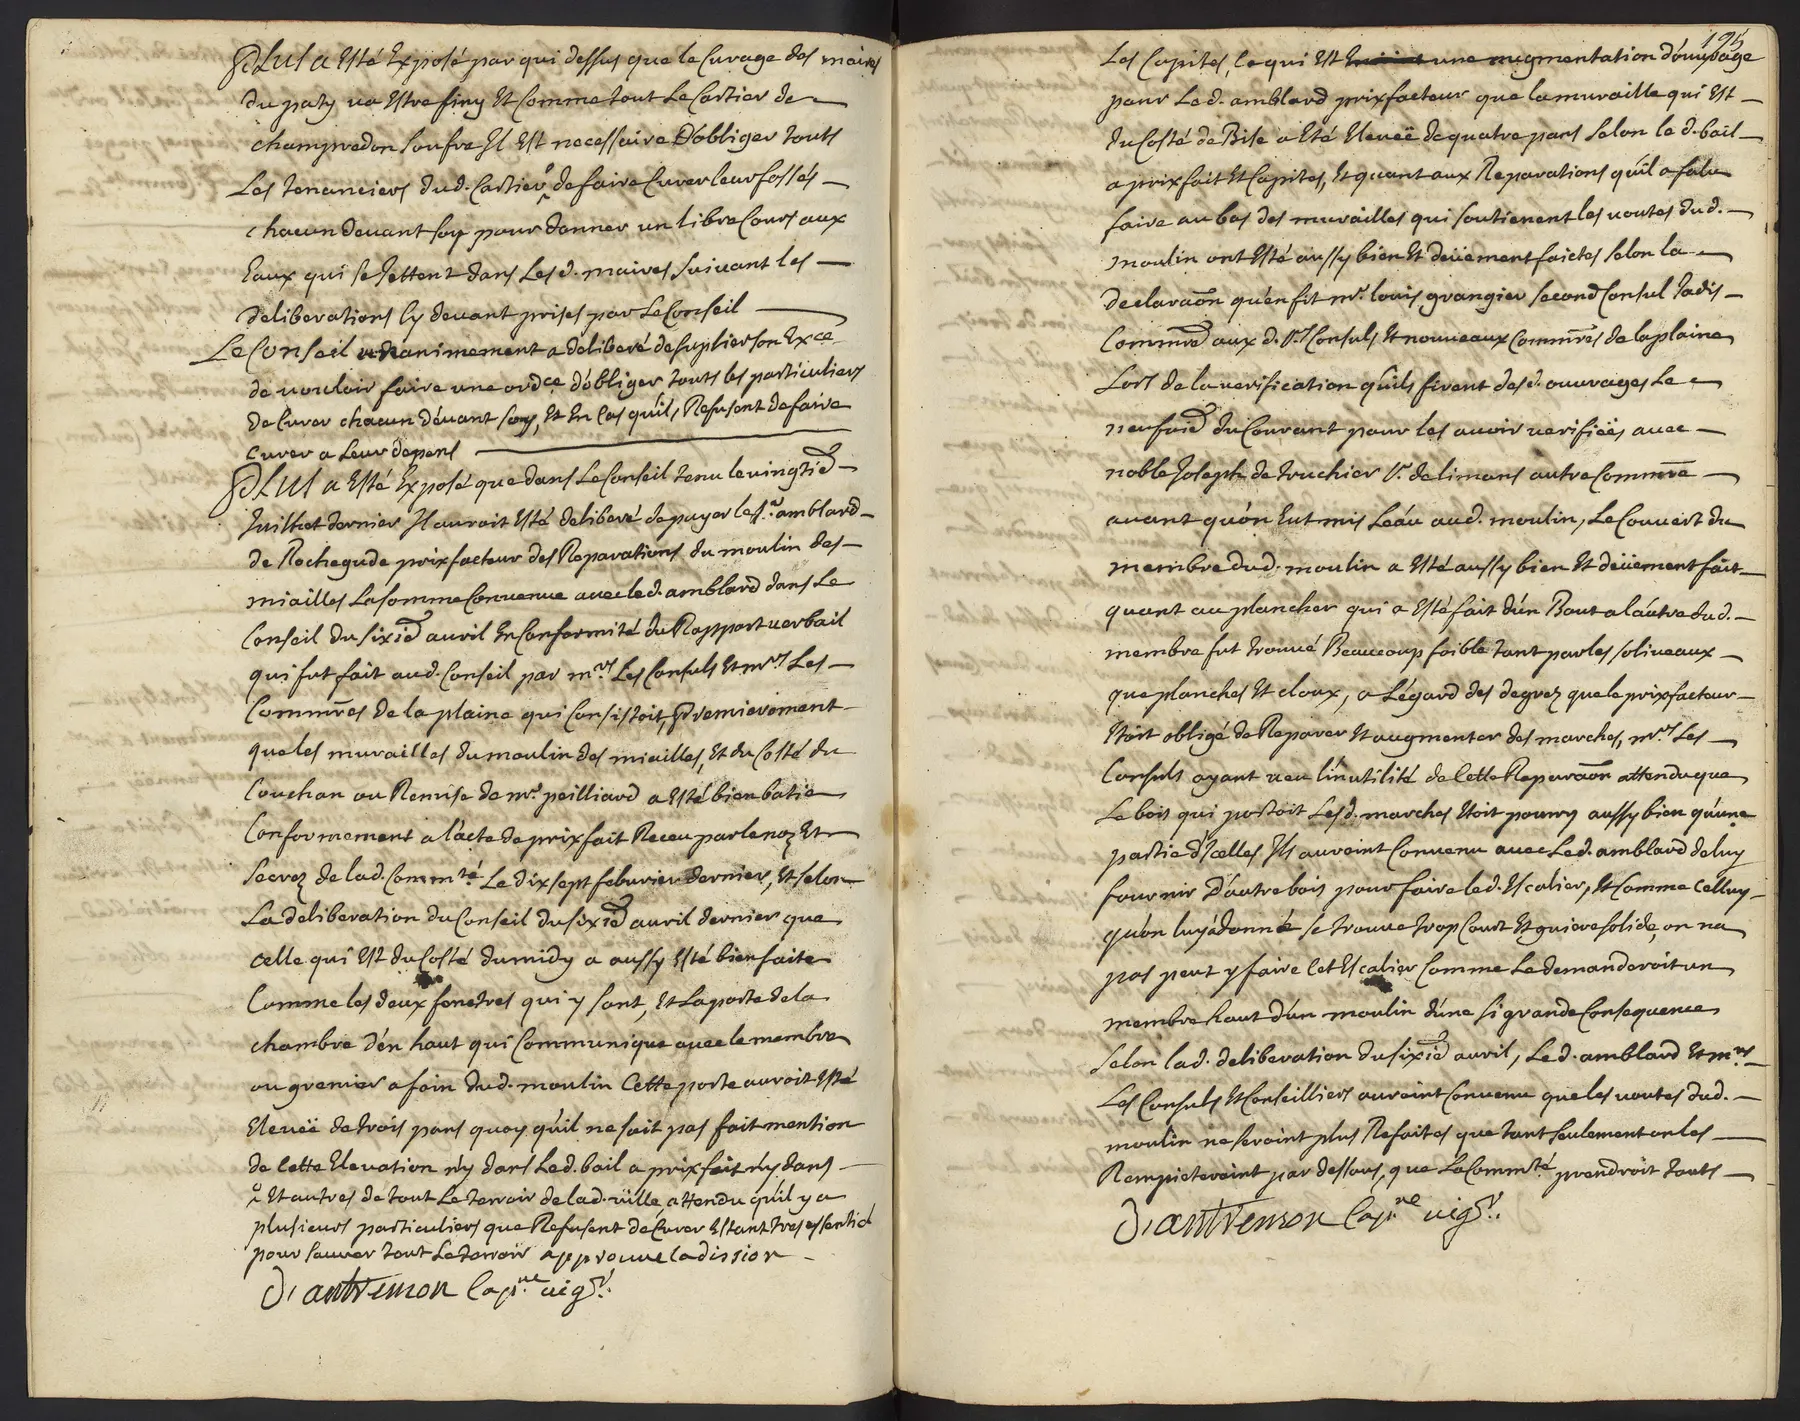 Plus a esté exposé par qui dessus que le curage des maires
du paty va estre finy et comme tout le cartier de
champredon soufre Il est necessaire d'obliger touts
les tenanciers dud. cartier de faire curer leur fossés
chacun devant soy pour donner un libre cours aux
eaux qui se jettent dans lesd. maires suivant les
deliberations cy devant prises par le conseil
Le Conseil unanimement a deliberé de suplier son Exce
de vouloir faire une ordce d'obliger touts les particuliers
de curer chacun devant soy, et en cas qu'ils refusent de faire
curer a leur depens
Plus a esté exposé que dans le conseil tenu le vingtie
Juilhet dernier Il auroit esté deliberé de payer le sr amblard
de Rochegude prixfacteur des Reparations du moulin des
miailles la somme convenue avec led. amblard dans le
conseil du sixie avril en conformité du Rapport verbail
qui fut fait aud. conseil par mrs les consuls et mrs les
commres de la plaine qui consistoit, premierement
que les murailles du moulin des miailles, et du costé du
couchan ou Remise de mr peilliard a esté bien batie
conformement a l'acte de prixfait Receu par le noe et
secrez de lad. commté le dix sept febvrier dernier, et selon
la deliberation du conseil du sixie avril dernier que
celle qui est du costé du midy a aussy esté bien faite
comme les deux fenetres qui y sont, et la porte de la
chambre d'en haut qui communique avec le membre
ou grenier a foin dud. moulin cette porte auroit esté
elevëe de trois pans quoy qu'il ne soit pas fait mention
de cette elevation n'y dans led. bail a prixfait n'y dans
et autres de tout le terroir de lad. ville, attendu qu'il y a
plusieurs particuliers que refusent de curer estant tres essentiel
pour sauver tout le terroir approuve ladission
D'autremon capne vigr.
195
les capites, ce qui est une augmentation d'ouvrage
pour led. amblard prixfacteur que la muraille qui est
du costé de Bise a eté elevëe de quatre pans selon led. bail
a prixfait et capites, et quant aux Reparations qu'il a falu
faire au bas des murailles qui soutienent les voutes dud.
moulin ont esté aussy bien et deüement faictes selon la
declaraon qu'en fit mr louis grangier second consul jadis
commre aux d. srs consuls et nouveaux commres de la plaine
lors de la verification qu'ils firent desd. ouvrages le
neufvie du courant pour les avoir verifiëes avec
noble Joseph de truchier sr de limans autre commre
avant qu'on eut mis l'eau aud. moulin, le couvert du
membre dud. moulin a esté aussy bien et deüement fait
quant au plancher qui a esté fait d'un Bout a l'autre dud.
membre fut trouvé Beaucoup foible tant par les soliveaux
que planches et cloux, a l'égard des degrez que le prixfacteur
etoit obligé de Reparer et augmenter des marches, mrs les
consuls ayant veu l'inutilité de cette Reparaon attendu que
le bois qui portoit lesd. marches etoit pourry aussy bien qu'une
partie d'Icelles Ils auroint convenu avec led. amblard de luy
fournir d'autre bois pour faire led. escalier, et comme celluy
qu'on luy a donné se trouve trop court et guiere solide, on na
pas peut y faire cet escalier comme le demanderoit un
membre haut d'un moulin d'une si grande consequence
selon lad. deliberation du sixie avril, led. amblard et mrs
les consuls et conseilliers auroint convenu que les voutes dud.
moulin ne seroint plus Refaites que tant seulement on les
Rempieteroint par dessous, que la commté prendroit touts
D'autremon capne vigr.